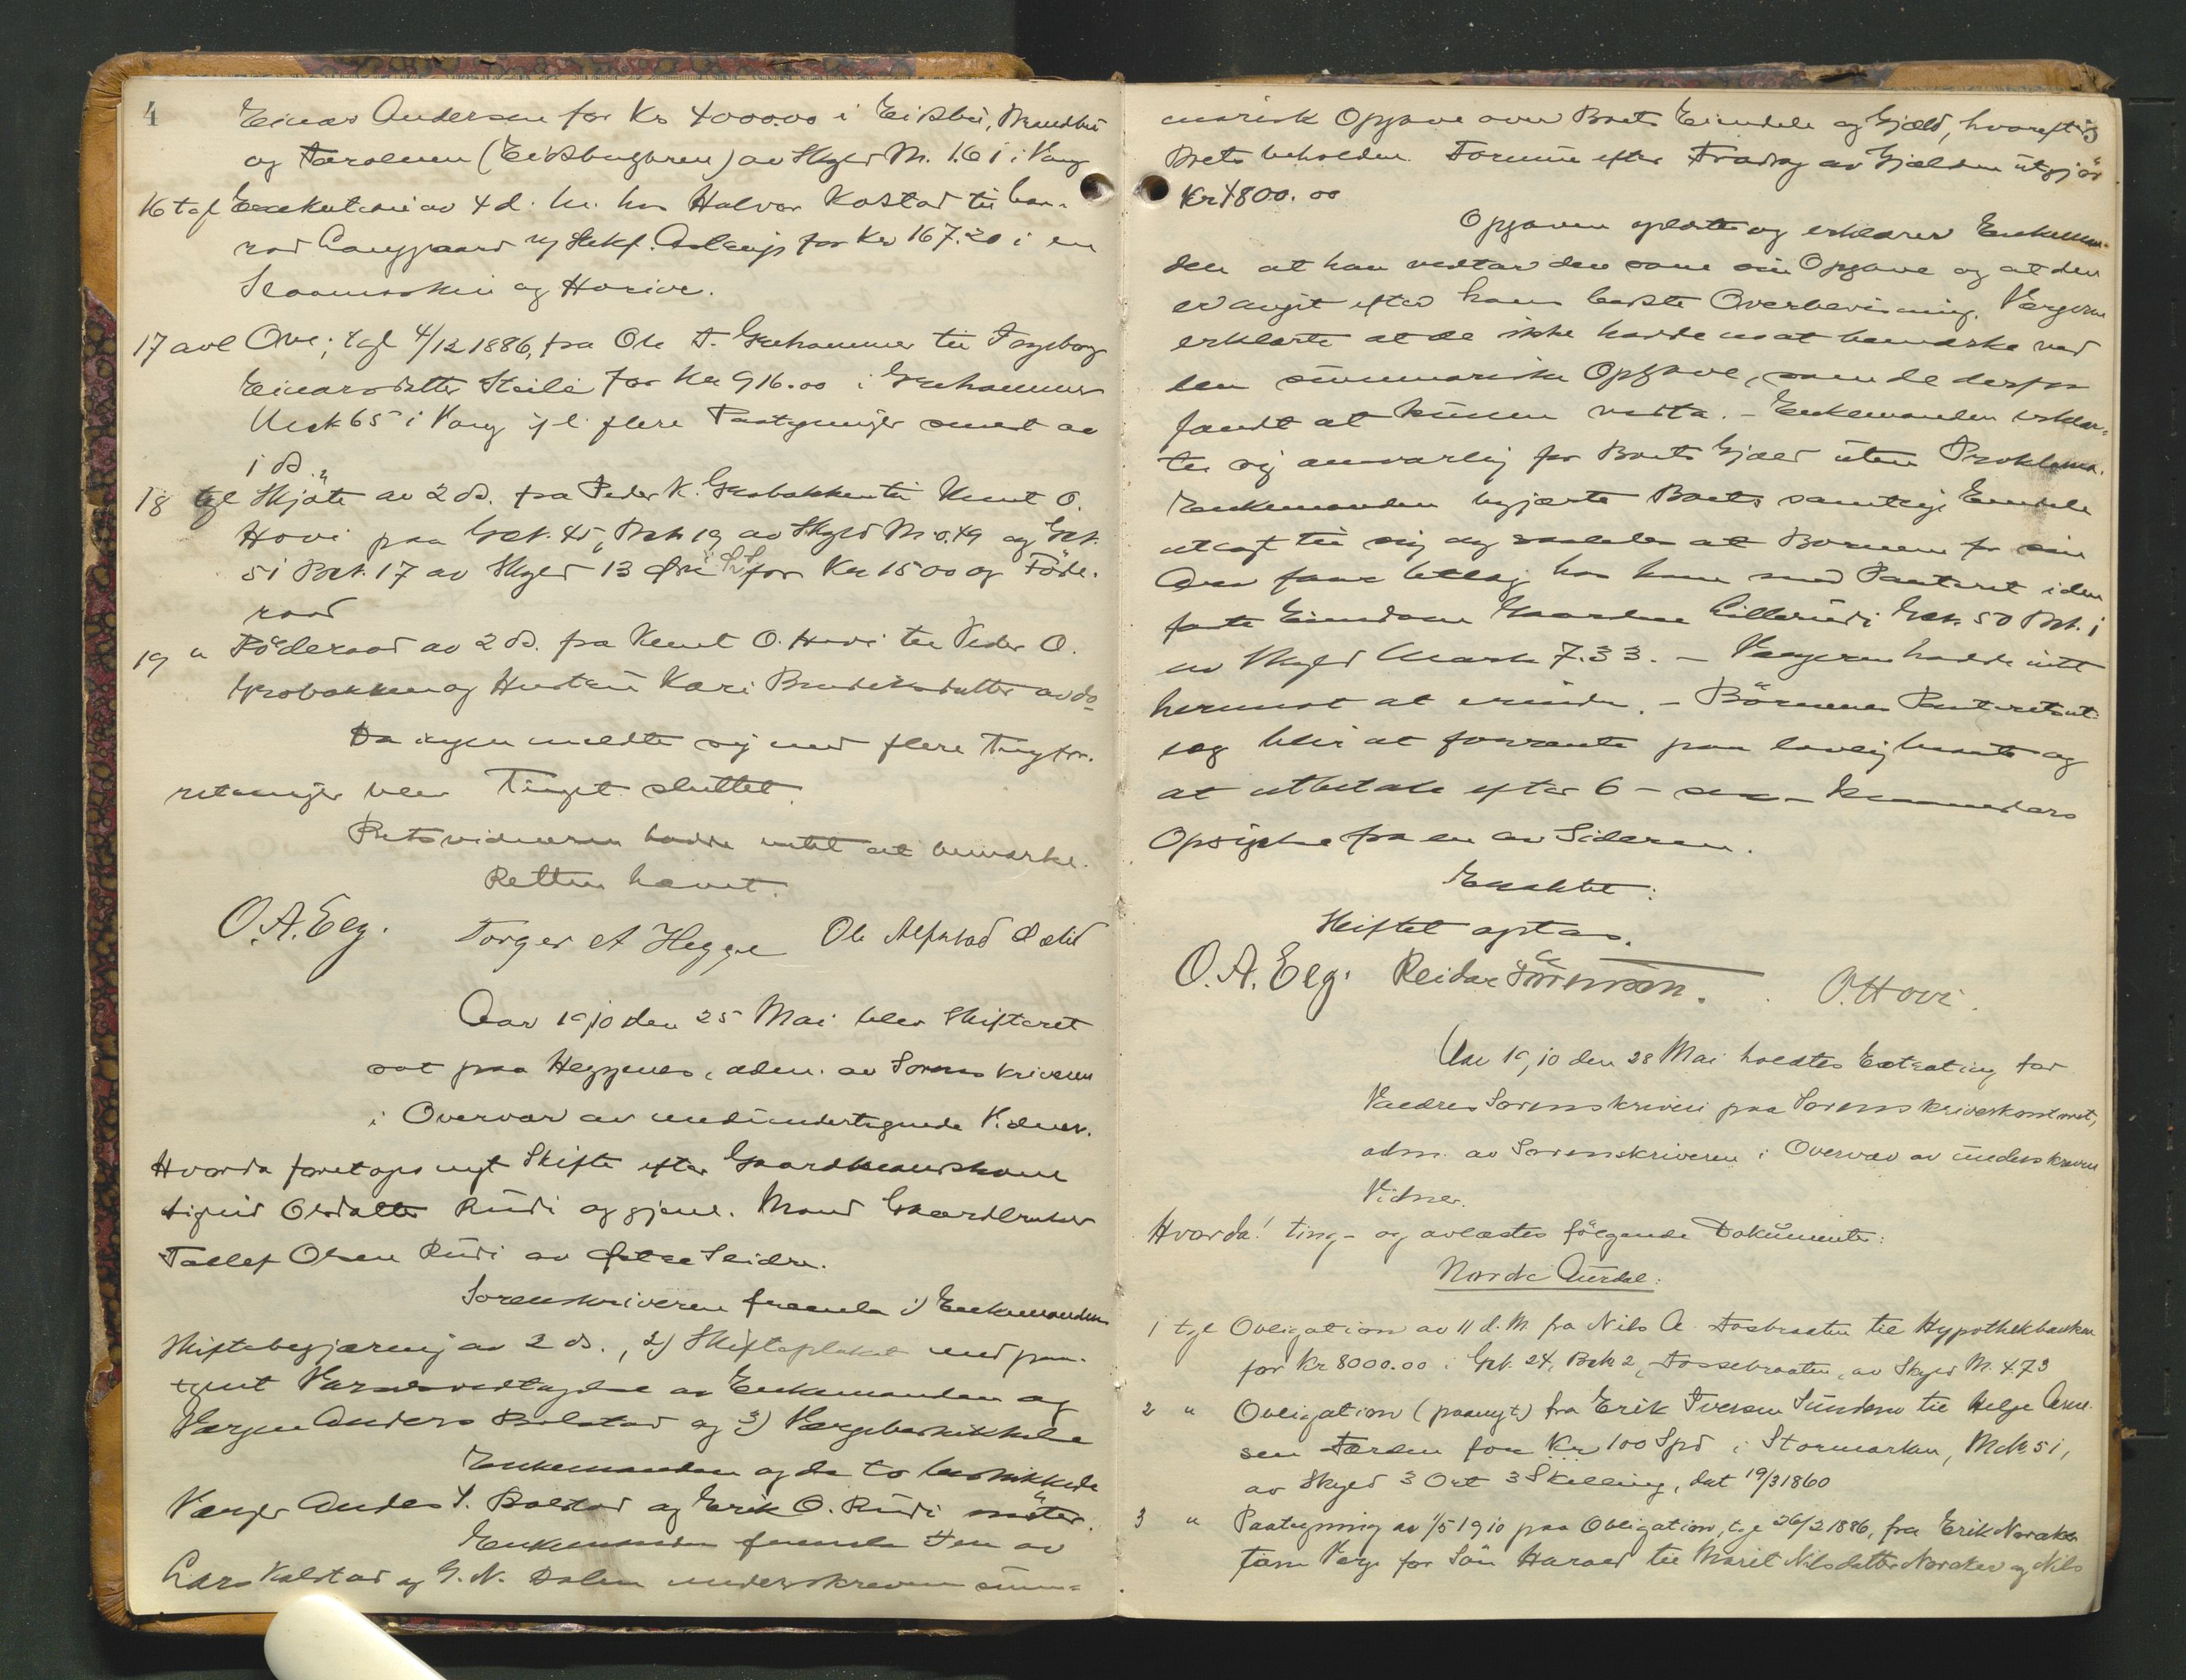 4
Einar Andersen for Kr 4000.00 i Eidsbu,
og (Eidsbugaren) av Skyld M. 1.61 i Vang
16 tgl av 4 d. m. hos Halvor Kostad til Con-
rad Langgaard for Kr 167.20 i en
Slaamaskin og Horive.
17 avl Ove; tgl 4/12 1886, fra Ole T. Grihammer til Ingeborg
Einarsdatter Steile for Kr 916.00 i Grihammer
Mtk 65 i Vang flere Paategninger senest av
i ds.
18 tgl Skjöte av 2 ds. fra Peder K. Grobakken til Knut O.
Hovi paa Grk. 45, Brk 19 av Skyld M 0.49 og Grk.
51 Brk. 17 av Skyld 13 Øre for Kr 1500 og Föde-
raad
19 " Föderaad av 2 ds. fra Knut O. Hovi til Peder O.
Grobakken og Hustru Kari av do
Da ingen meldte sig med flere Tingfor-
retninger blev Tinget sluttet.
Retsvidnerne hadde intet at bemærke.
Retten hævet.
O.A. Eeg. Torger A Hegge Ole
Aar 1910 den 25 Mai blev Skifteret
sat paa Heggenes, adm. av Sorenskriveren
i Overvær av medundertegnede Vidner.
Hvorda foretages nyt Skifte efter Gaardmandskone
Sigrid Olsdatter Rudi og gjenl. Mand Gaardbruker
Tollef Olsen Rudi av Østre Slidre.
Sorenskriveren fremla 1) Enkemandens
Skiftebegjæring av 2 ds., 2) Skifteplakat med paa-
tegnt av Enkemanden og
Vergen Anders Bolstad og 3) Vergebeskikkelse
Enkemanden og de to beskikkede
Verger Anders T. Bolstad og Erik O. Rudi möter.
Enkemanden fremla den av
Lars Kolstad og G. N. Dalen underskrevne sum-
5
marisk Opgave over Boets Eiendele og Gjæld, hvorefter
Boets beholdne Formue efter Fradrag av Gjælden utgjör
Kr 4800.00
Opgaven oplæstes og erklærer Enkeman-
den at han vedtar den som sin Opgave og at den
er avgit efter hans bedste Overbevisning. Vergerne
erklærte at de ikke hadde noat bemærke ved
den summariske Opgave, som de derfor
fandt at kunne vedta. - Enkemanden erklær-
te sig ansvarlig for Boets Gjæld uten Proklama.
Enkemanden begjærte Boets samtlige Eiendele
utlagt til sig og saaledes at Börnene for sin
Arv faar Utlæg hos ham med Panteret i den
faste Eiendom Gaarden Lillerudi Grk 50 Brk. 1
av Skyld Mark 7.33. - Vergerne hadde intt
herimot at erindre. - Börnenes Panteretsut-
læg blir at forrente paa lovlig Maate og
at utbetale efter 6 - sex - Maaneders
Opsigelse fra en av Siderne.
Eragtet:
Skiftet optas.
O.A. Eeg. Reidar . O. Hovi.
Aar 1910 den 28 Mai holdtes Extrating for
Valdres Sorenskriveri paa Sorenskriverkontoret,
adm. av Sorenskriveren i Overvær av underskrevne
Vidner.
Hvorda! ting- og avlæstes fölgende Dokumenter:
Nordre Aurdal:
1 tgl Obligation av 11 d. M. fra Nils A. Fosbraaten til Hypothekbanken
for Kr 8000.00 i Grk. 24, Brk 2, Fossebraaten, av Skyld M. 4.73
2 " Obligation (paanyt) fra Erik Iversen til Helge Arne-
sen Færden for Kr 100 Spd i Stormarken, Mtk 51,
av Skyld 3 Ort 3 Skilling, dat 19/3 1860
3 " Paategning av 1/5 1910 paa Obligation, tgl 26/2 1886, fra Erik Noraker
som Verge for Sön Harald til Marit Nilsdatter Noraker og Nils